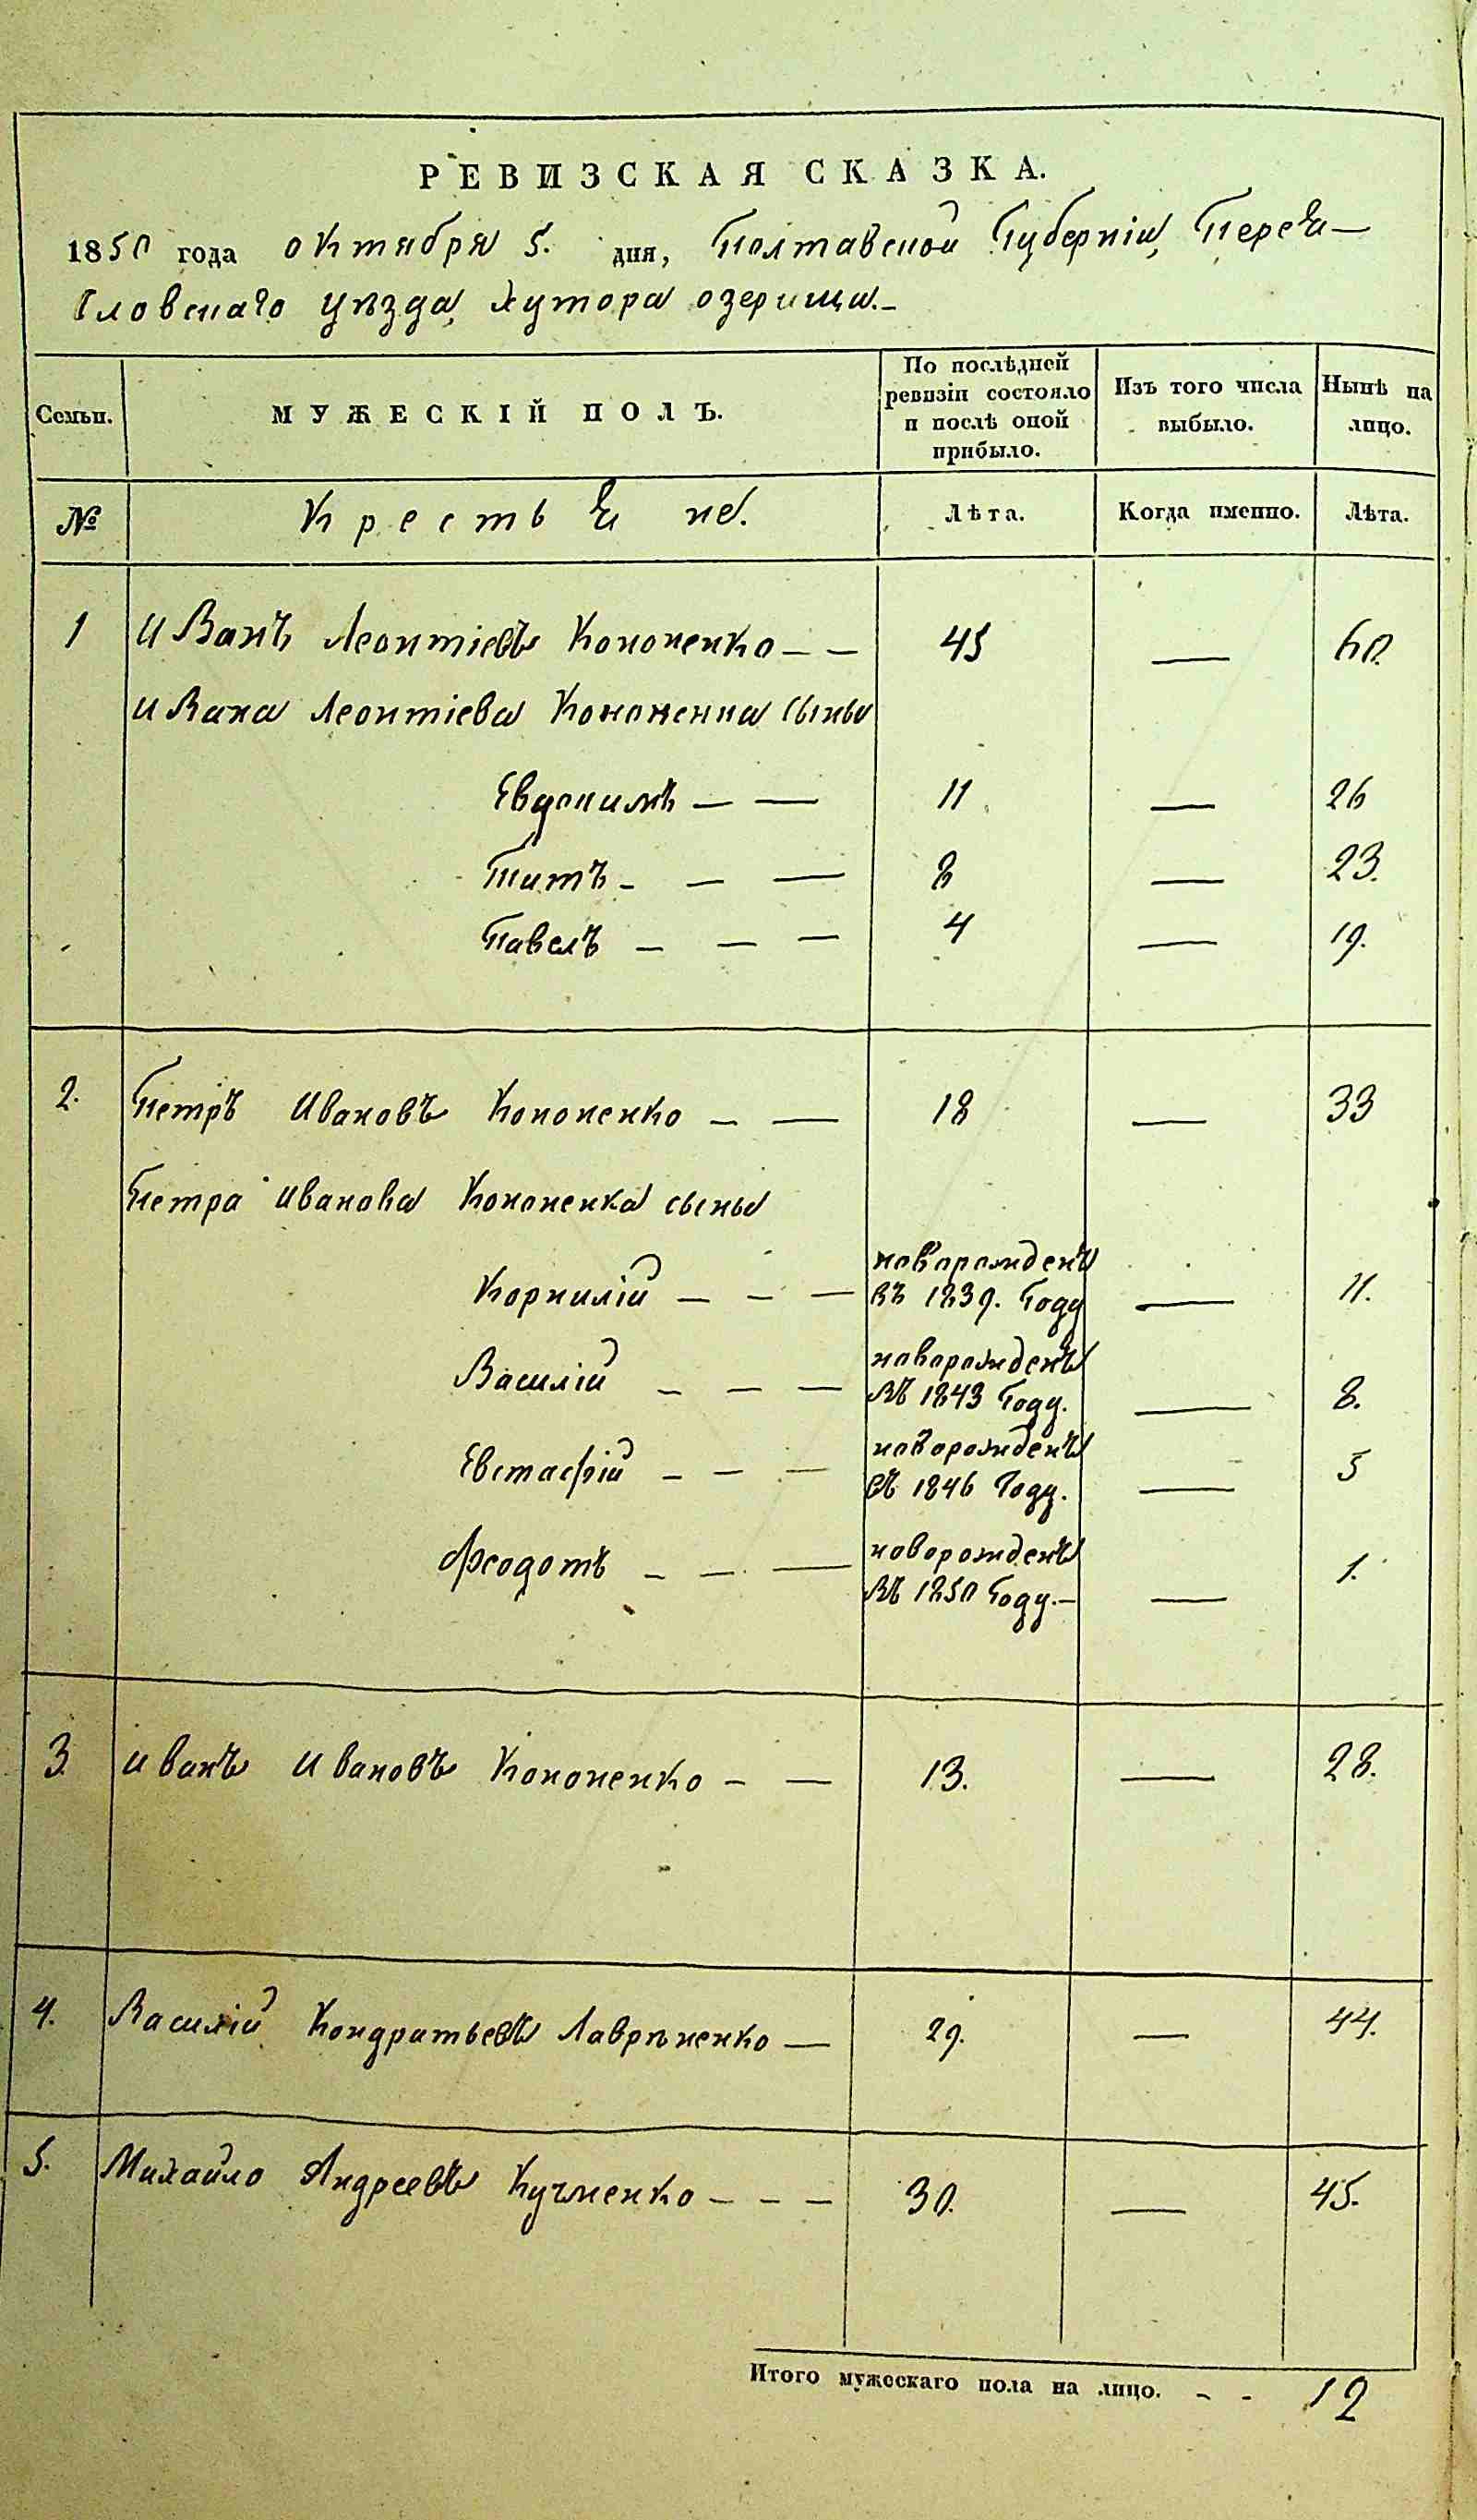 РЕВИЗСКАЯ СКАЗКА.
1850 года октября 5. дня, Полтавской Губерніи, Перея-
славскаго уѣзда, хутора озерища.-
Семьи.
МУЖЕСКІЙ ПОЛЪ.
По послѣдней ревизіи состояло и послѣ оной прибыло.
Изъ того числа выбыло.
Нынѣ на лицо.
№ Крестьяне. Лѣта. Когда именно. Лѣта.
1 Иванъ Леонтіевъ Кононенко - - 45 — 60.
Ивана Леонтіева Кононенка сыны
Евдокимъ - — 11 — 26
Титъ - - — 8 — 23.
Павелъ - - - 4 — 19.
2. Петръ Ивановъ Кононенко - — 18 — 33
Петра Иванова Кононенка сыны
новорожденъ
Корнилій - - — въ 1839. Году — 11.
новорожденъ
Василій - - — въ 1843 Году. — 8.
новорожденъ
Евстафій - - - въ 1846 Году. — 5
новорожденъ
Феодотъ - - — въ 1850 Году.- — 1.
3. Иванъ Ивановъ Кононенко - — 13. — 28.
4. Василій Кондратьевъ Лаврѣненко — 29. — 44.
5. Михайло Андреевъ Кучменко - - - 30. — 45.
Итого мужескаго пола на лицо. - - 12